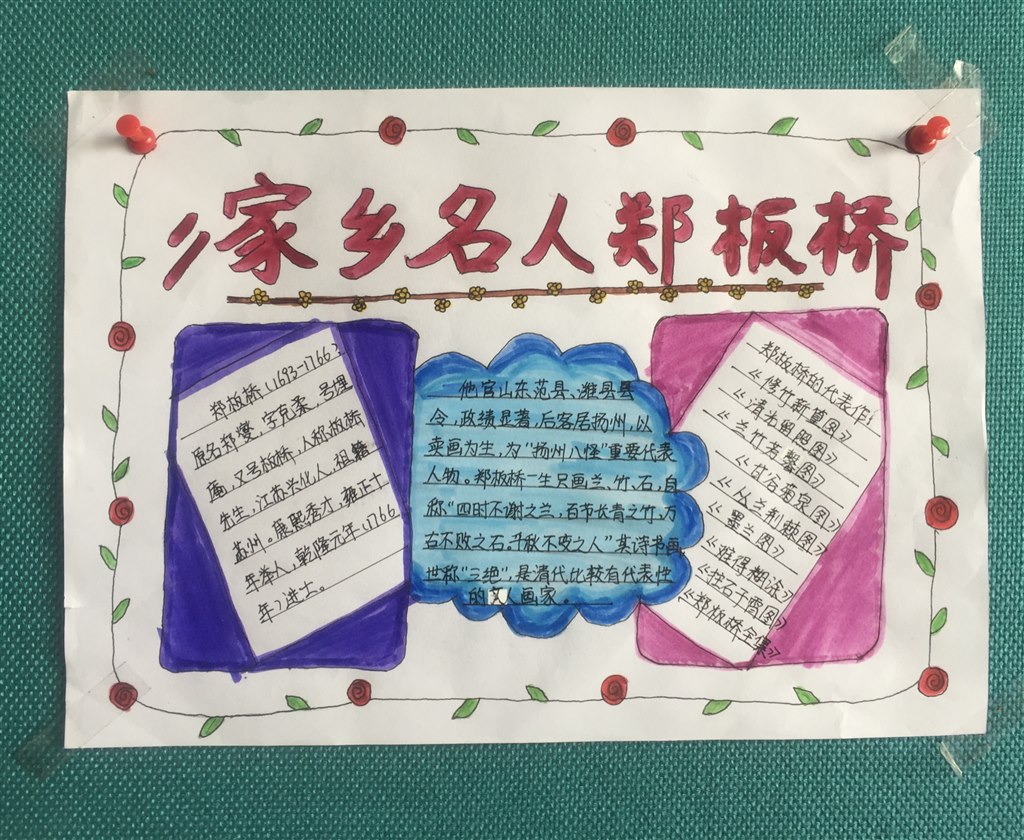 家乡名人郑板桥
郑板桥(1693-1766)
原名郑燮,字克柔,号理
庵,又号板桥,人称板桥
先生,江苏兴化人,祖籍
苏州。康熙秀才,雍正十
年举人,乾隆元年(1766
年)进士。
他官山东范县、潍县县
令,政绩显著,后客居扬州,以
卖画为生,为"扬州八怪"重要代表
人物。郑板桥一生只画兰、竹、石,自
称"四时不谢之兰,百节长青之竹,万
古不败之石,千秋不变之人"其诗书画,
世称"三绝",是清代比较有代表性
的文人画家。
郑板桥的代表作!
《修竹新篁图》
《清光留照图》
《兰竹芳馨图》
《竹石菊泉图》
《丛兰荆棘图》
《墨兰图》
《难得糊涂》
《柱石干霄图》
《郑板桥全集》